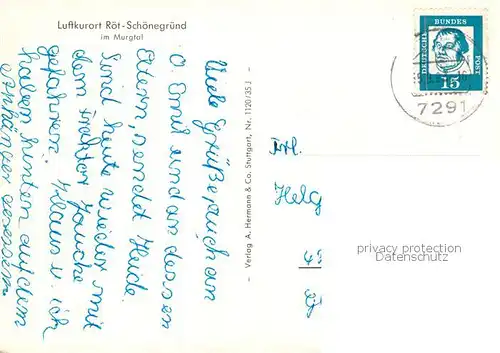 Luftkurort Röt-Schönegründ
im Murgtal
Viele Grüße auch an
O. Emil und an dessen
Eltern, sendet Heide.
Sind heute wieder mit
dem Traktor Jauche
gefahren. Klaus u. ich
haben hinten auf dem
Anhänger gesessen.
– Verlag A. Hermann & Co. Stuttgart, Nr. 1120/35 J –
DEUTSCHE
BUNDES
POST
15
7291
Frl.
Helg
privacy protection
Datenschutz